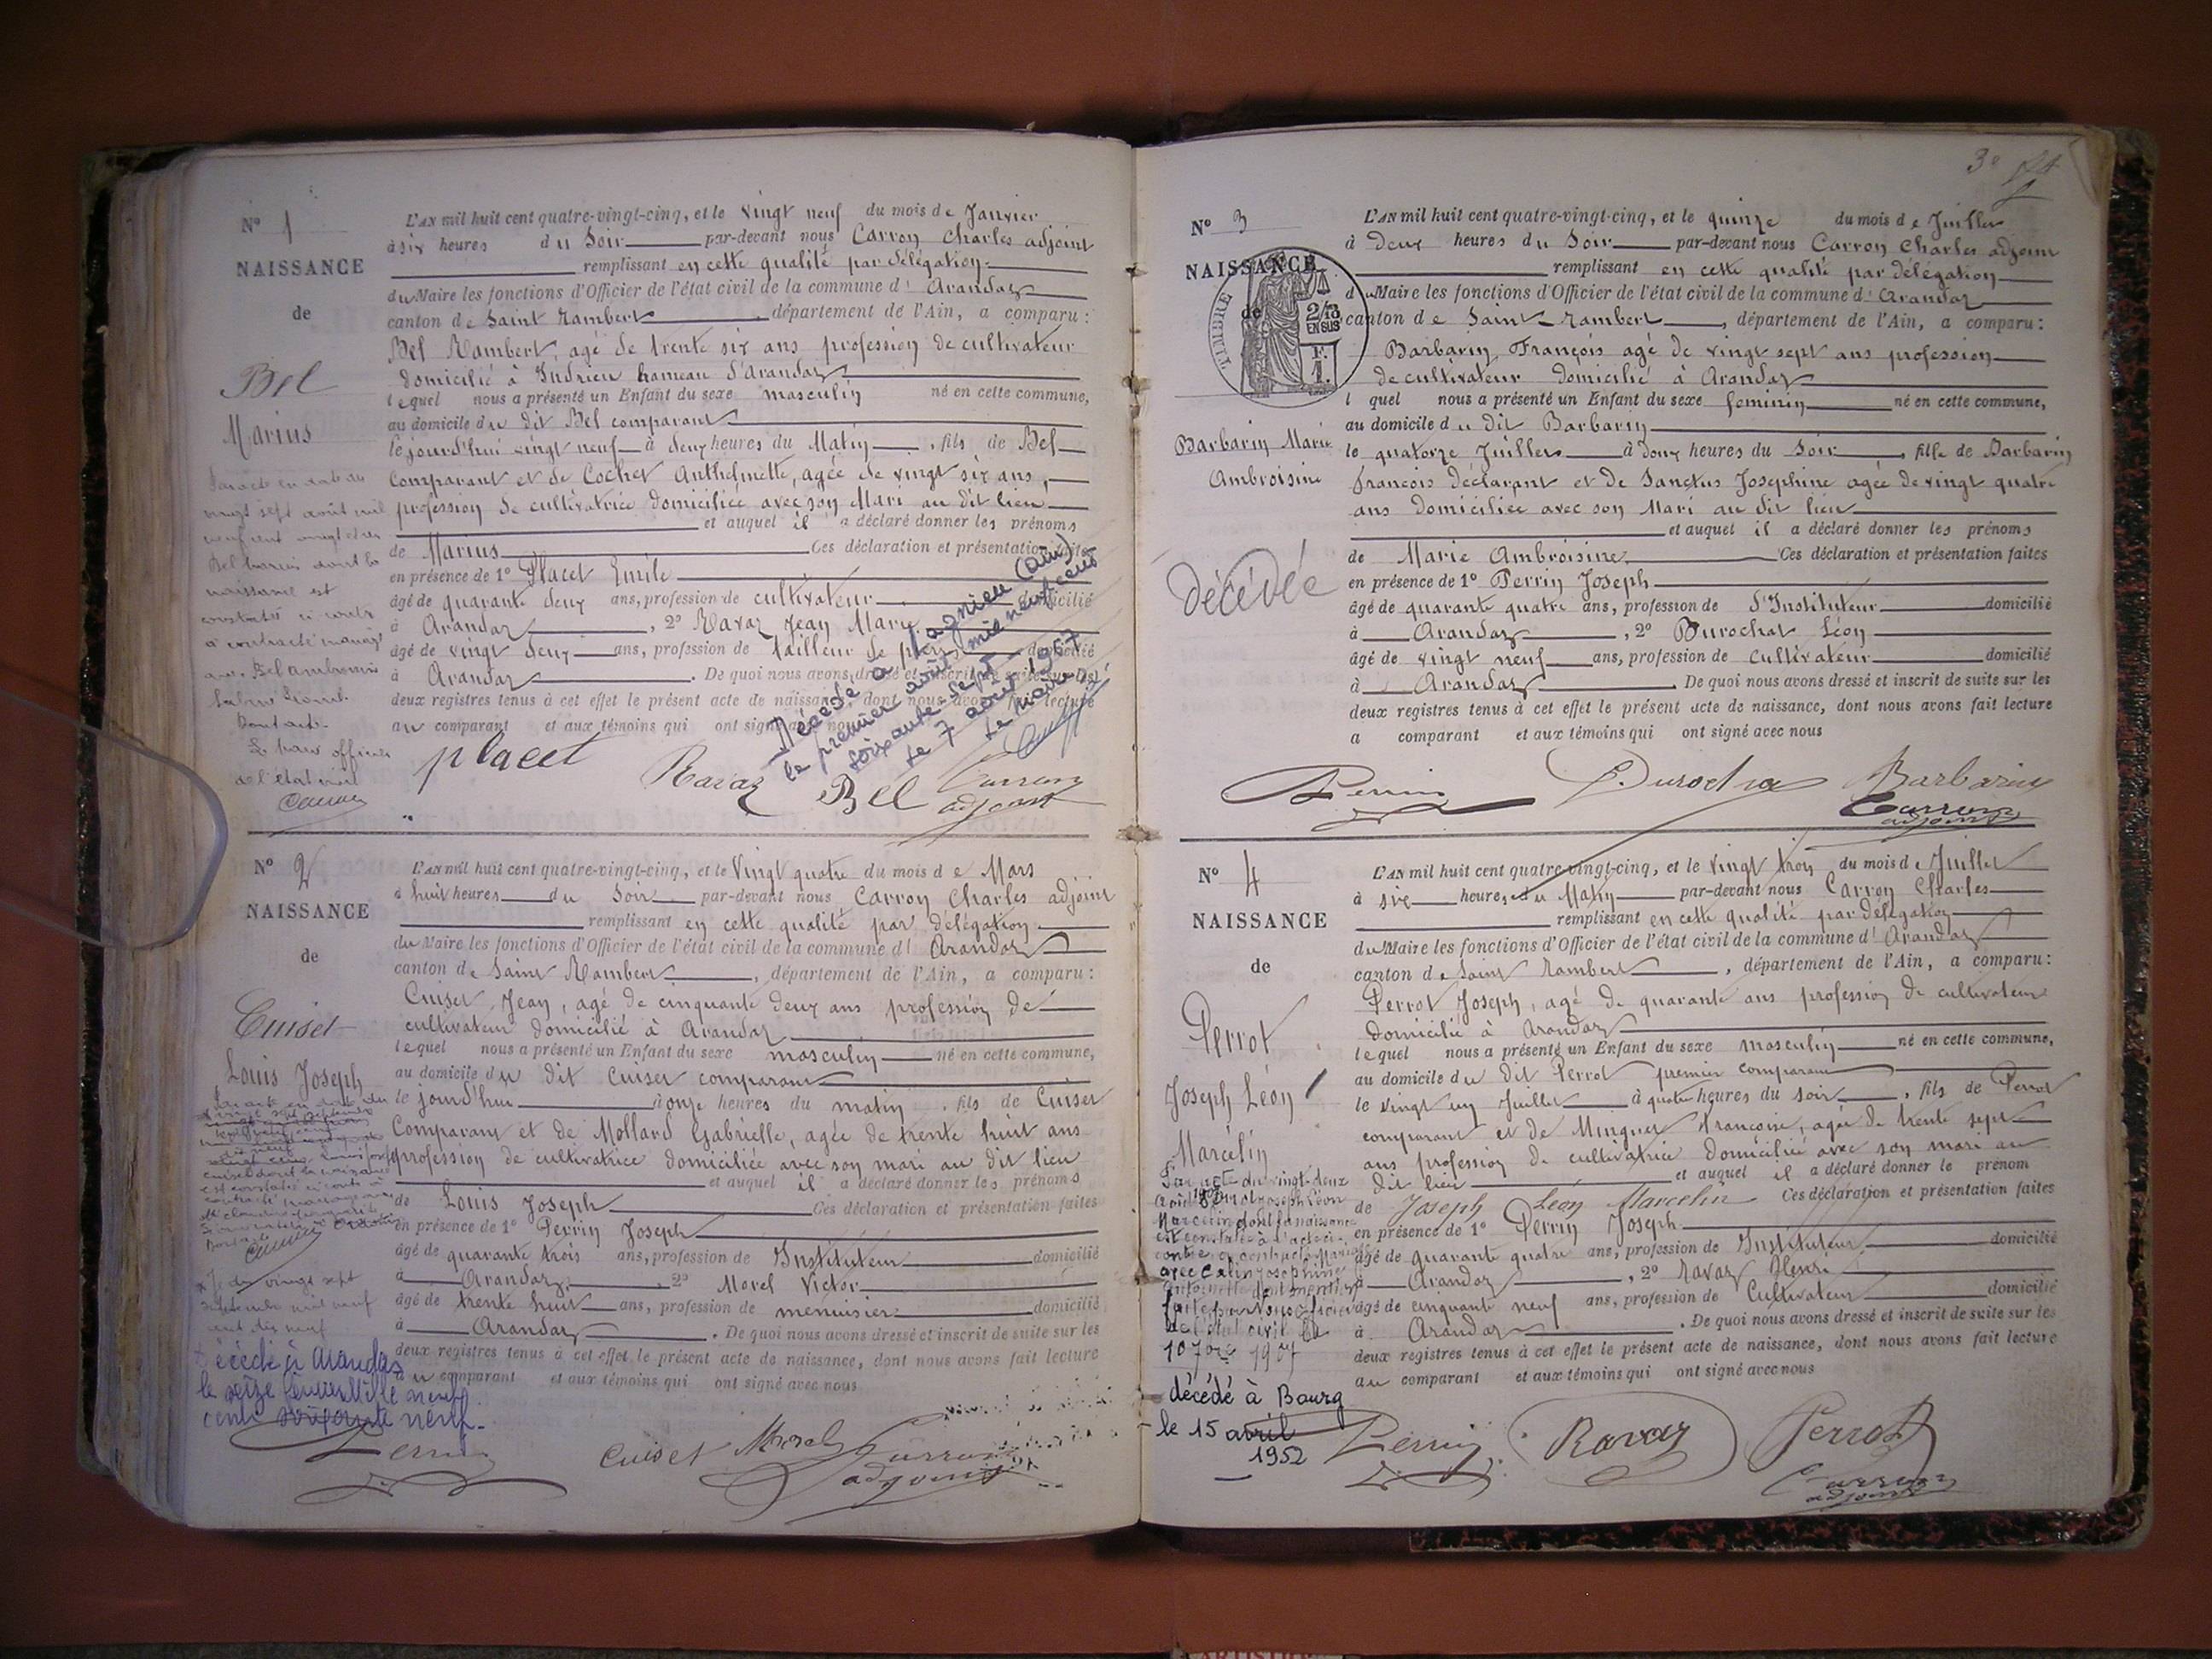 N° 1
NAISSANCE
de
Bel
Marius
L'AN mil huit cent quatre-vingt-cinq, et le vingt neuf du mois de Janvier
à six heures du Soir par-devant nous Carron Charles adjoint
remplissant en cette qualité par délégation
du Maire les fonctions d'Officier de l'état civil de la commune d' Arandas
canton de Saint Rambert, département de l'Ain, a comparu :
Bel Rambert, agé de trente six ans profession de cultivateur
domicilié à Indrieu hameau d'Arandas
lequel nous a présenté un Enfant du sexe masculin né en cette commune,
au domicile du dit Bel comparant
le jourd'hui vingt neuf à deux heures du Matin, fils de Bel
Comparant et de Cochet Anthelmette, agée de vingt six ans,
profession de cultivatrice domiciliée avec son Mari au dit lieu
et auquel il a déclaré donner les prénoms
de Marius Ces déclaration et présentation faites
en présence de 1° Placet Emile
âgé de quarante deux ans, profession de cultivateur domicilié
à Arandas, 2° Ravaz Jean Marie
âgé de vingt deux ans, profession de tailleur de pierre domicilié
à Arandas. De quoi nous avons dressé et inscrit de suite sur les
deux registres tenus à cet effet le présent acte de naissance, dont nous avons fait lecture
au comparant et aux témoins qui ont signé avec nous
Par acte en date du
vingt sept août mil
neuf cent vingt
Bel Marius dont la
naissance est
constatée ci contre
a contracté mariage
avec Bel
Dont acte.
Le maire officier
de l'état civil
Décédé à Lagnieu (Ain)
le premier août mil neuf cent
soixante sept
le 7 août 1967
Le maire
placet Ravaz Bel Carron
adjoint
N° 2
NAISSANCE
de
Cuiset
Louis Joseph
L'AN mil huit cent quatre-vingt-cinq, et le Vingt quatre du mois de Mars
à huit heures du Soir par-devant nous Carron Charles adjoint
remplissant en cette qualité par délégation
du Maire les fonctions d'Officier de l'état civil de la commune d' Arandas
canton de Saint Rambert, département de l'Ain, a comparu :
Cuiset, Jean, agé de cinquante deux ans profession de
cultivateur domicilié à Arandas
lequel nous a présenté un Enfant du sexe masculin né en cette commune,
au domicile du dit Cuiset comparant
le jourd'hui à onze heures du matin, fils de Cuiset
Comparant et de Mollard Gabrielle, agée de trente huit ans
profession de cultivatrice domiciliée avec son mari au dit lieu
et auquel il a déclaré donner les prénoms
de Louis Joseph Ces déclaration et présentation faites
en présence de 1° Perrin Joseph
âgé de quarante trois ans, profession de Instituteur domicilié
à Arandas, 2° Morel Victor
âgé de trente huit ans, profession de menuisier domicilié
à Arandas. De quoi nous avons dressé et inscrit de suite sur les
deux registres tenus à cet effet le présent acte de naissance, dont nous avons fait lecture
au comparant et aux témoins qui ont signé avec nous
vingt sept
septembre mil neuf
cent dix neuf
décédé à Arandas
le seize mille neuf
cent soixante neuf.
Perrin Cuiset Morel Carron
adjoint
3°
N° 3
NAISSANCE
de
TIMBRE
2/10
EN SUS
F.
1.
Barbarin Marie
Ambroisine
décédée
L'AN mil huit cent quatre-vingt-cinq, et le quinze du mois de Juillet
à Deux heures du Soir par-devant nous Carron Charles adjoint
remplissant en cette qualité par délégation
du Maire les fonctions d'Officier de l'état civil de la commune d' Arandas
canton de Saint Rambert, département de l'Ain, a comparu :
Barbarin, François agé de vingt sept ans profession
de cultivateur domicilié à Arandas
l quel nous a présenté un Enfant du sexe féminin né en cette commune,
au domicile du dit Barbarin
le quatorze Juillet à deux heures du Soir, fille de Barbarin
francois déclarant et de Sanctus Josephine agée de vingt quatre
ans domiciliée avec son Mari au dit lieu
et auquel il a déclaré donner les prénoms
de Marie Ambroisine Ces déclaration et présentation faites
en présence de 1° Perrin Joseph
âgé de quarante quatre ans, profession de d'Instituteur domicilié
à Arandas, 2° Durochat Léon
âgé de vingt neuf ans, profession de cultivateur domicilié
à Arandas. De quoi nous avons dressé et inscrit de suite sur les
deux registres tenus à cet effet le présent acte de naissance, dont nous avons fait lecture
a comparant et aux témoins qui ont signé avec nous
Perrin Durochat Barbarin
Carron
adjoint
N° 4
NAISSANCE
de
Perrot
Joseph Léon
Marcelin
L'AN mil huit cent quatre-vingt-cinq, et le vingt trois du mois de Juillet
à six heures du Matin par-devant nous Carron Charles
remplissant en cette qualité par délégation
du Maire les fonctions d'Officier de l'état civil de la commune d' Arandas
canton de Saint Rambert, département de l'Ain, a comparu :
Perrot Joseph, agé de quarante ans profession de cultivateur
domicilié à Arandas
lequel nous a présenté un Enfant du sexe masculin né en cette commune,
au domicile du dit Perrot premier comparant
le vingt un Juillet à quatre heures du soir, fils de Perrot
comparant et de Minguet francoise, agée de trente sept
ans profession de cultivatrice domiciliée avec son mari au
dit lieu et auquel il a déclaré donner le prénom
de Joseph Léon Marcelin Ces déclaration et présentation faites
en présence de 1° Perrin Joseph
âgé de quarante quatre ans, profession de Instituteur domicilié
à Arandas, 2° Ravaz Henri
âgé de cinquante neuf ans, profession de Cultivateur domicilié
à Arandas. De quoi nous avons dressé et inscrit de suite sur les
deux registres tenus à cet effet le présent acte de naissance, dont nous avons fait lecture
au comparant et aux témoins qui ont signé avec nous
Par acte du vingt-deux
Perrot Joseph Léon
Marcelin dont la naissance
est constatée à l'acte ci-
contre a contracté mariage
avec Josephine
Antoinette dont mention
faite par nous officier
de l'état civil le
10 7bre 1907
décédé à Bourg
le 15 avril
1952
Perrin Ravaz Perrot
Carron
adjoint